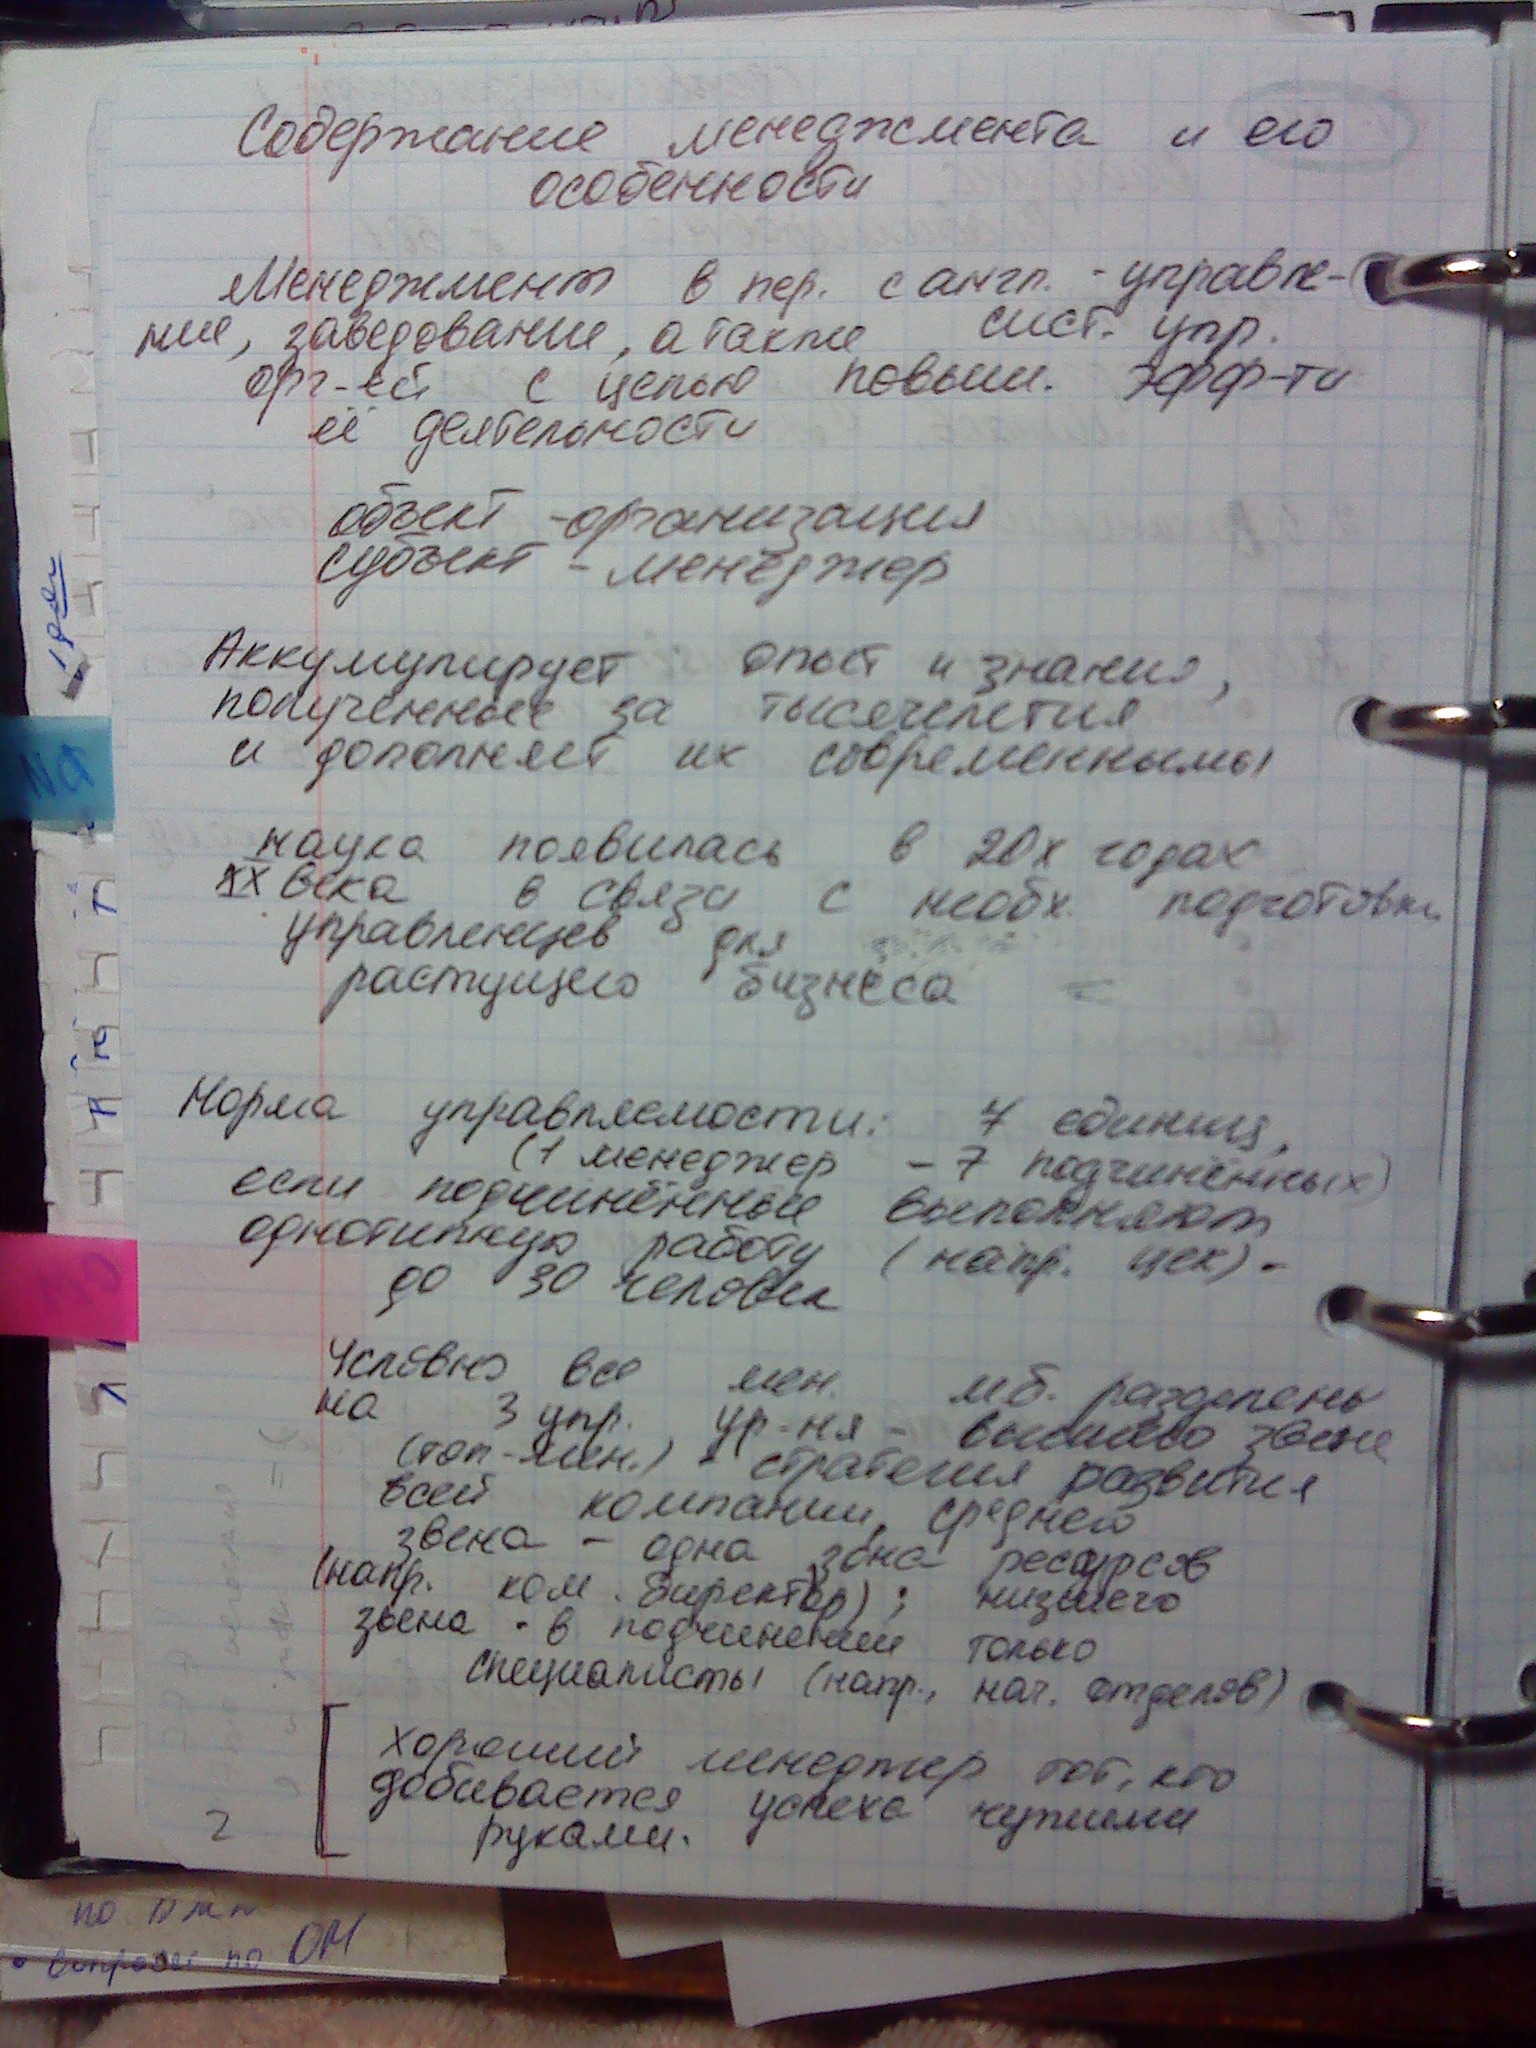 Содержание менеджмента и его
особенности
Менеджмент в пер. с англ. - управле-
ние, заведование, а также сист. упр.
орг-ей с целью повыш. эфф-ти
её деятельности
объект - организация
субъект - менеджер
Аккумулирует опыт и знания,
полученные за тысячелетия
и дополняет их современными
наука появилась в 20х годах
XX века в связи с необх. подготовки
управленцев для
растущего бизнеса
Норма управляемости: 7 единиц,
(1 менеджер - 7 подчинённых)
если подчинённые выполняют
однотипную работу (напр. цех) -
до 30 человек
Условно все мен. мб. разделены
на 3 упр. ур-ня - высшего звена
(топ-мен.) - стратегия развития
всей компании, среднего
звена - одна зона ресурсов
(напр. ком. директор); низшего
звена - в подчинении только
специалисты (напр., нач. отделов)
хороший менеджер тот, кто
добивается успеха чужими
руками.
2
по
• вопросы по ОМ